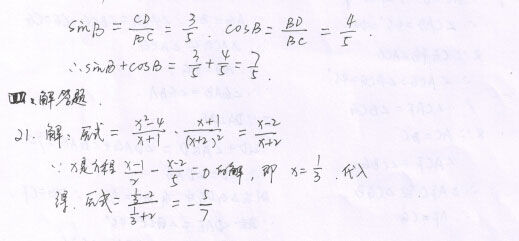 sinB = CD/BC = 3/5 . cosB = BD/BC = 4/5 .
∴ sinB + cosB = 3/5 + 4/5 = 7/5 .
解答题 .
21. 解: 原式 = x²-4/x+1 · x+1/(x+2)² = x-2/x+2
∵ x是方程 x-1/2 - x-2/5 = 0 的解, 即 x = 1/3 . 代入
得. 原式 = (1/3-2)/(1/3+2) = -5/7